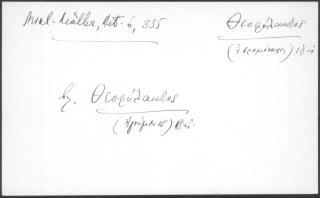 Mikl-Müller, Act. 6, 335
Θεοφύλακτος
(ἱερομόναχος) 18αι.
βλ. Θεοφύλακτος
(ἡγούμενος) 18αι.